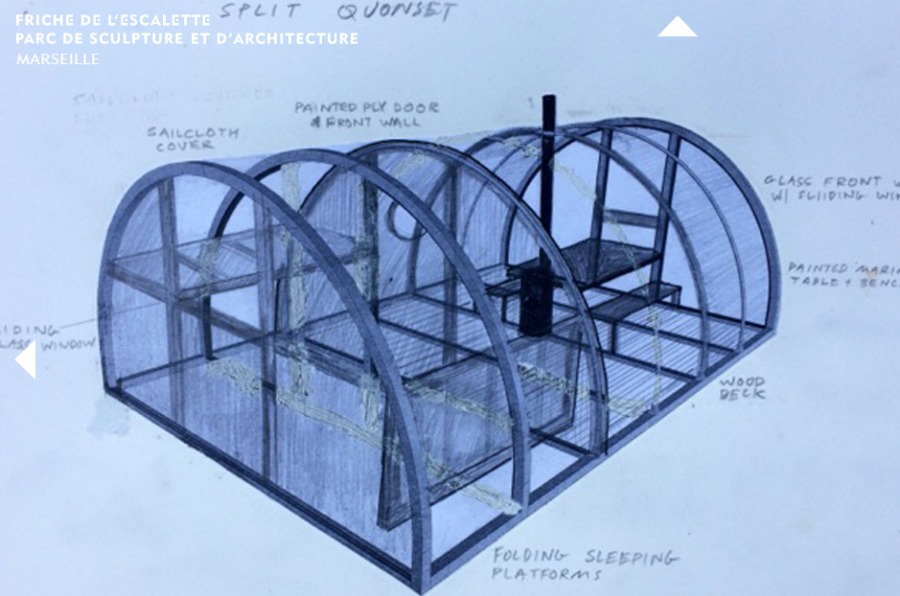 FRICHE DE L'ESCALETTE
PARC DE SCULPTURE ET D'ARCHITECTURE
MARSEILLE
SPLIT QUONSET
SAILCLOTH COVERED
PAINTED PLY DOOR
& FRONT WALL
SAILCLOTH
COVER
GLASS FRONT W
W/ SLIIDING WIN
PAINTED MARIN
TABLE + BENC
LIDING
LASS WINDOW
WOOD
DECK
FOLDING SLEEPING
PLATFORMS